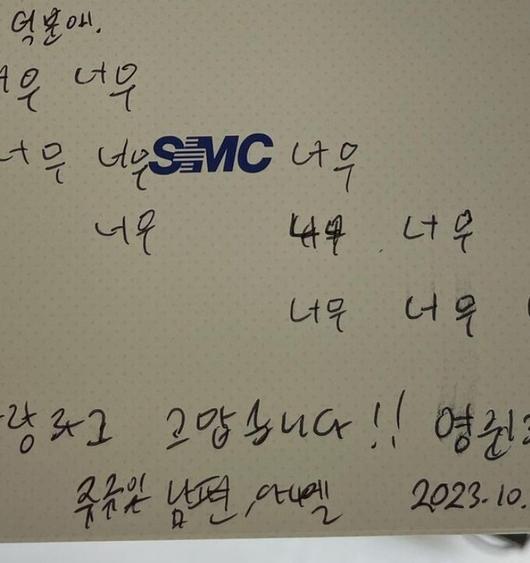 덕분에.
너무 너무
너무 너무 SMC 너무
너무 너무 너무
너무 너무
사랑하고 고맙습니다!! 영원
남편, 2023.10.